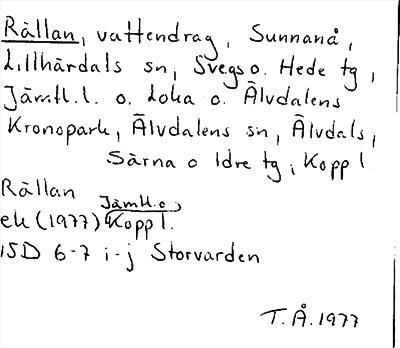 Rällan, vattendrag, Sunnanå,
Lillhärdals sn, Svegs o. Hede tg,
Jämtl.l. o. Loka o. Älvdalens
Kronopark, Älvdalens sn, Älvdals,
Särna o Idre tg, Kopp l.
Rällan
Jämtl. o.
ek (1977) Kopp l.
15D 6-7 i-j Storvarden
T.Å. 1977